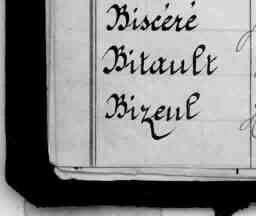 Biscéré
Bitault
Bizeul